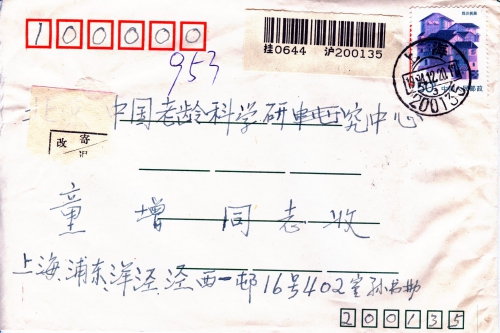 100000
挂0644 沪200135
953
上海
1994.12.20.17
200135
50
中国老龄科学研究中心
改 寄
童增同志收
上海浦东洋泾泾西一邨16号402室孙
200135